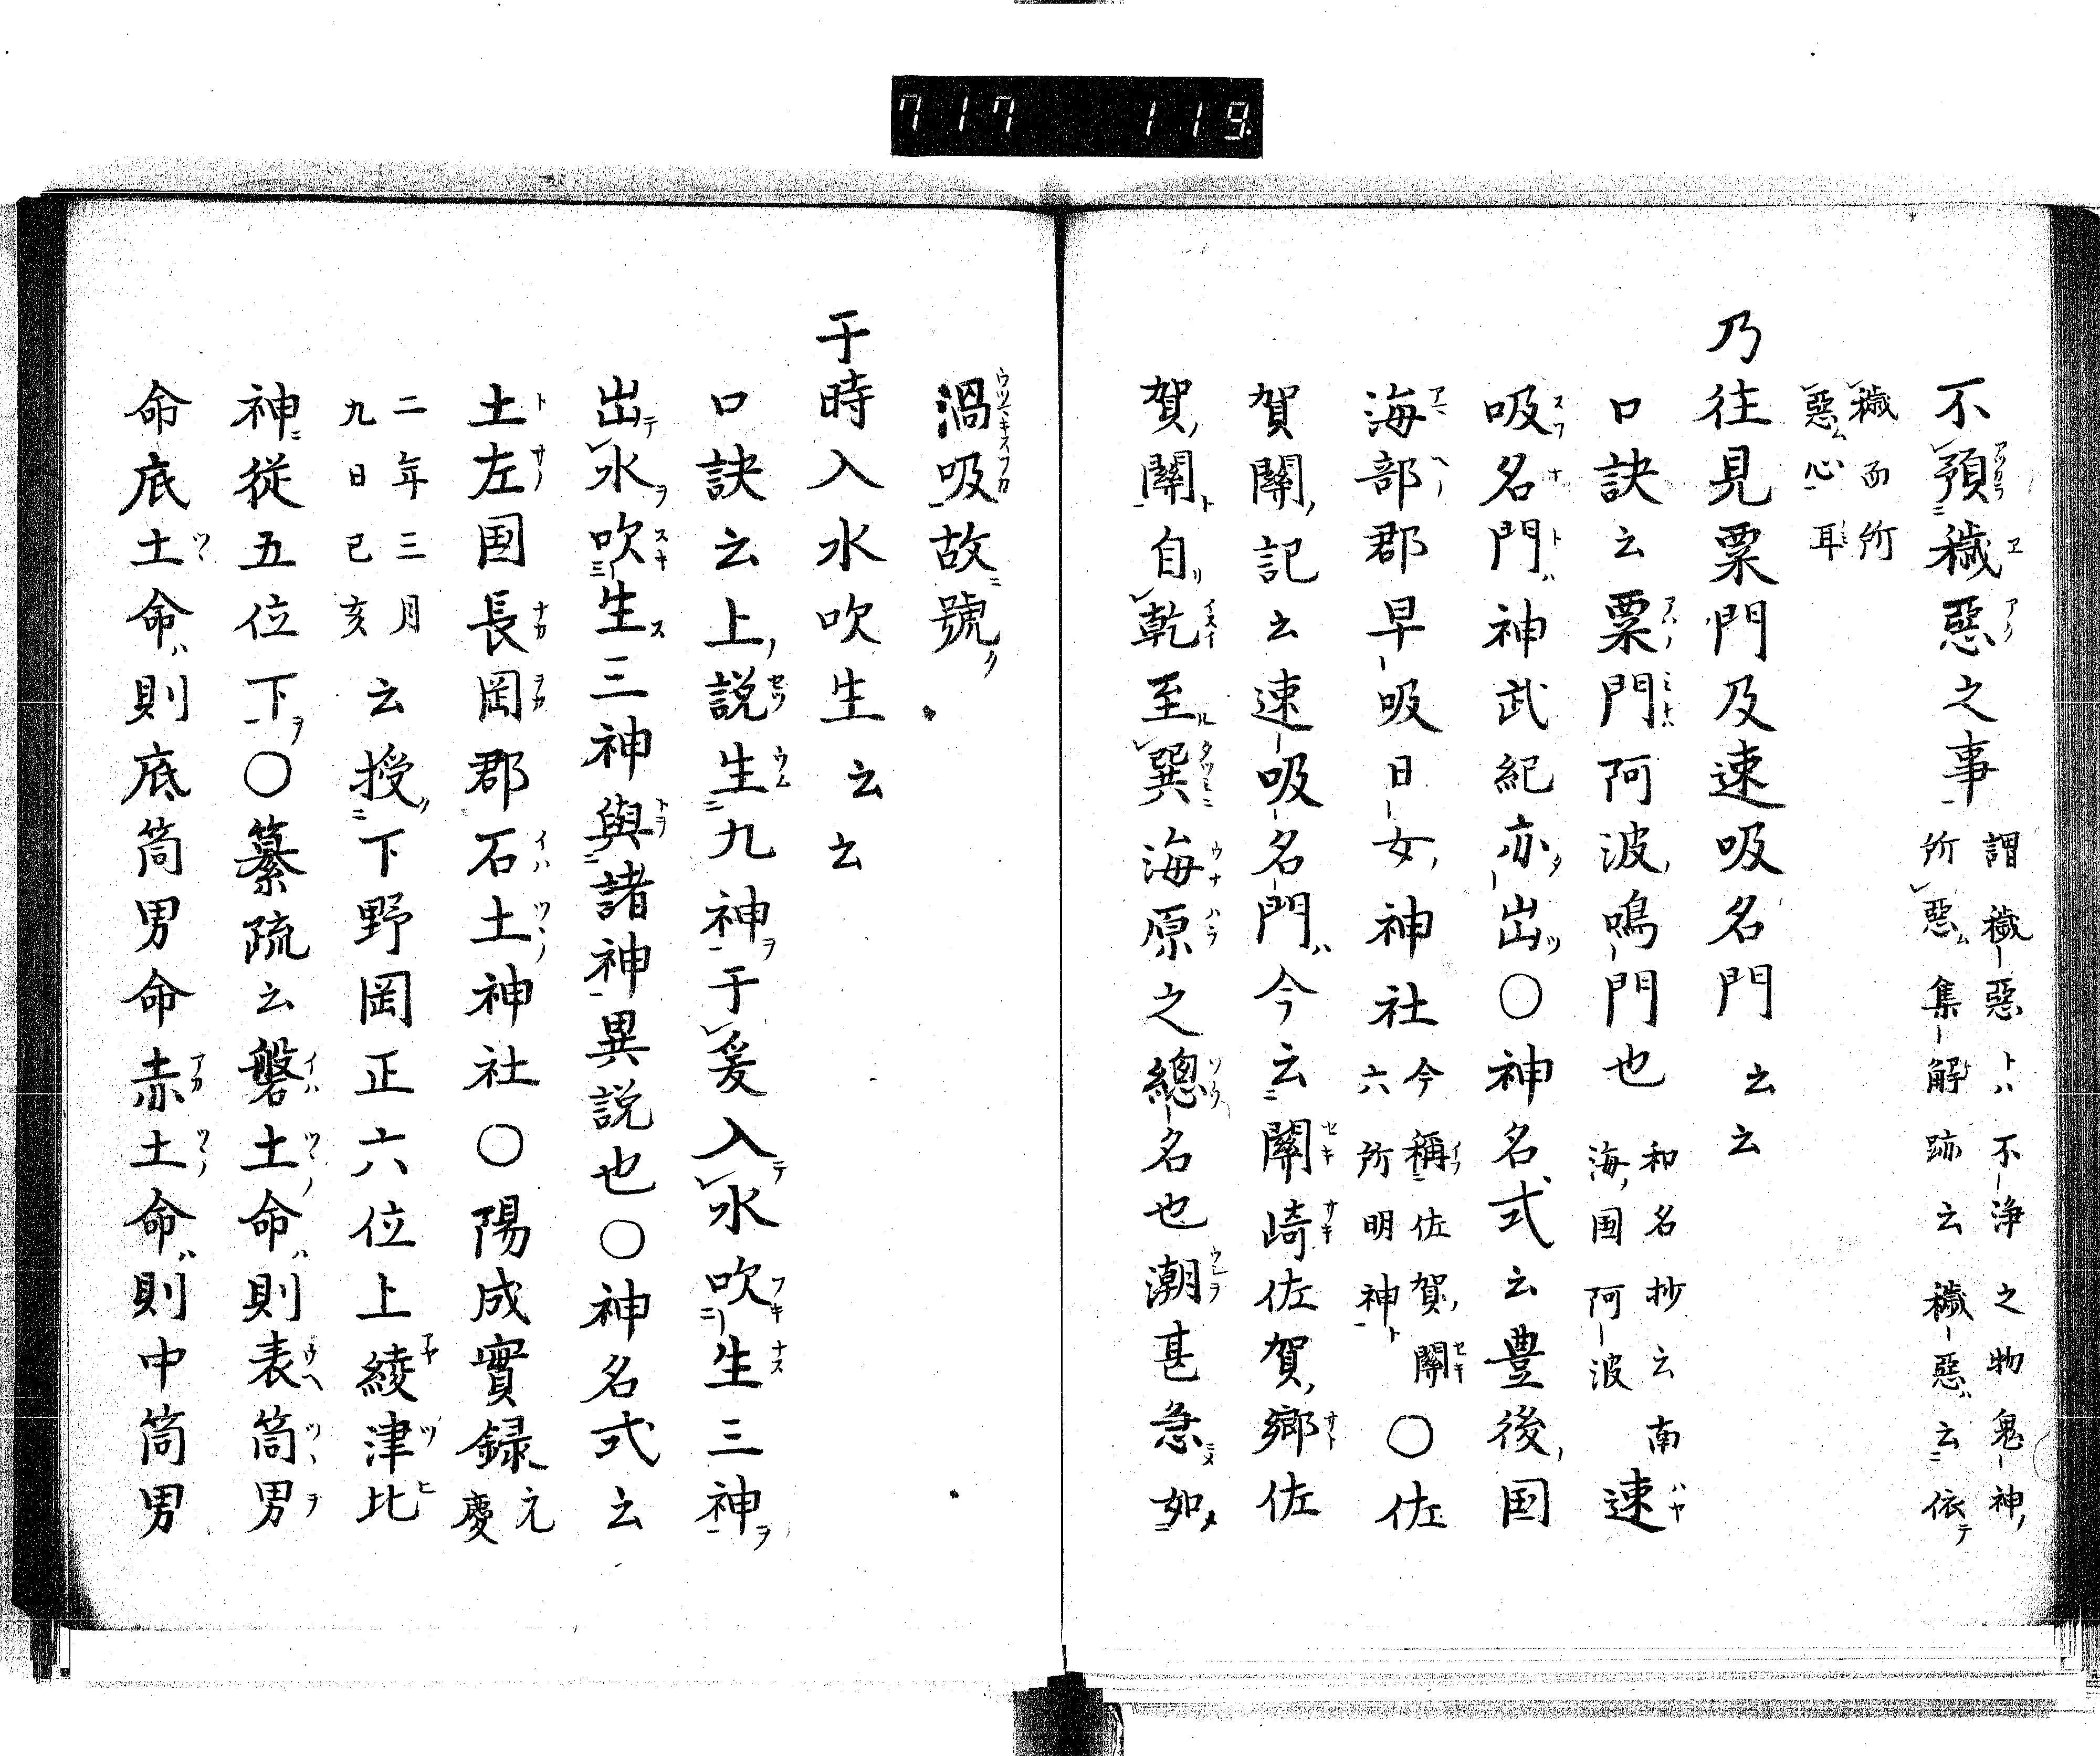 717 119
不預穢惡之事 謂穢惡トハ不浄之物鬼神
所惡集解跡云穢惡云依
穢而所
惡心耳
乃往見粟門及速吸名門云云
口訣云粟門阿波鳴門也 和名抄云南
海国阿波 速
吸名門神武紀亦出〇神名式云豊後国
海部郡早吸日女神社 今稱佐賀關
六所明神 〇佐
賀關記云速吸名門今云關崎佐賀郷佐
賀關自乾至巽海原之總名也潮甚急如
渦吸故號
于時入水吹生云云
口訣云上説生九神于爰入水吹生三神
出水吹生三神與諸神異説也〇神名式云
土左国長岡郡石土神社〇陽成實録 元
慶
二年三月
九日己亥 云授下野岡正六位上綾津比
神從五位下〇纂疏云磐土命則表筒男
命底土命則底筒男命赤土命則中筒男